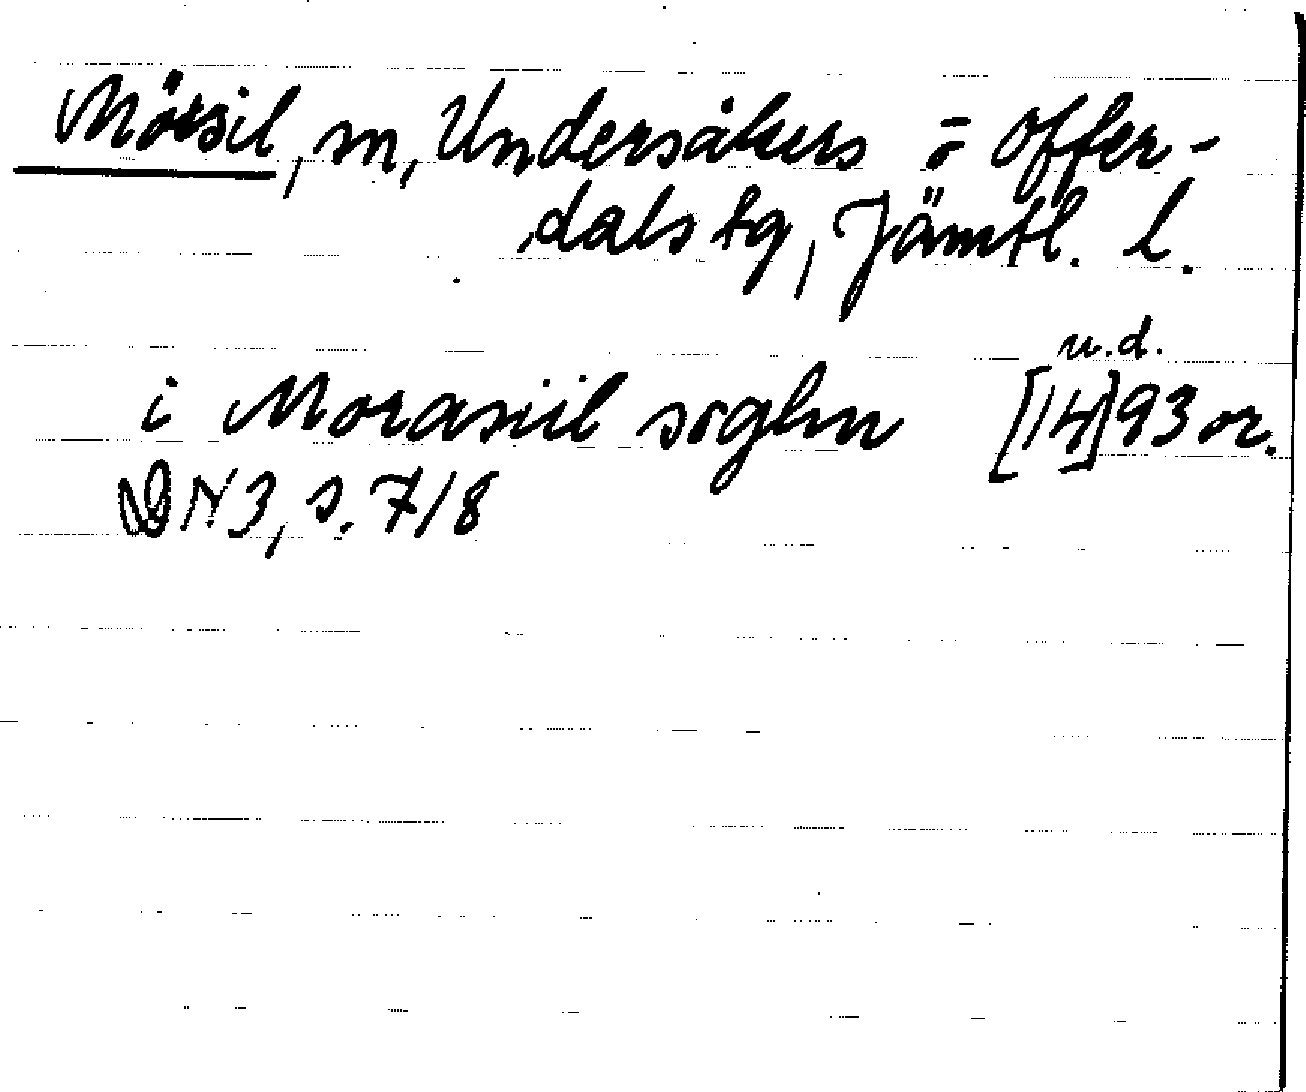 Mörsil, sn, Undersåkers o Offer-
dals tg, Jämtl. l.
u.d.
i Morasiil soghn [14]93 or.
DN3, s. 718